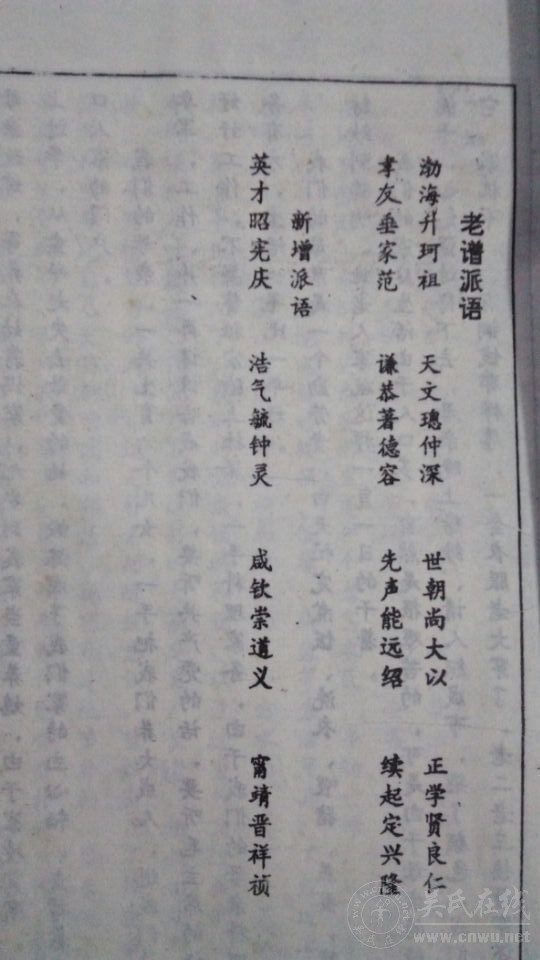 老谱派语
渤海升珂祖 天文璁仲深 世朝尚大以 正学贤良仁
孝友垂家范 谦恭著德容 先声能远绍 续起定兴隆
新增派语
英才昭宪庆 浩气毓钟灵 咸钦崇道义 甯靖晋祥祯
吴氏在线
www.cnwu.net